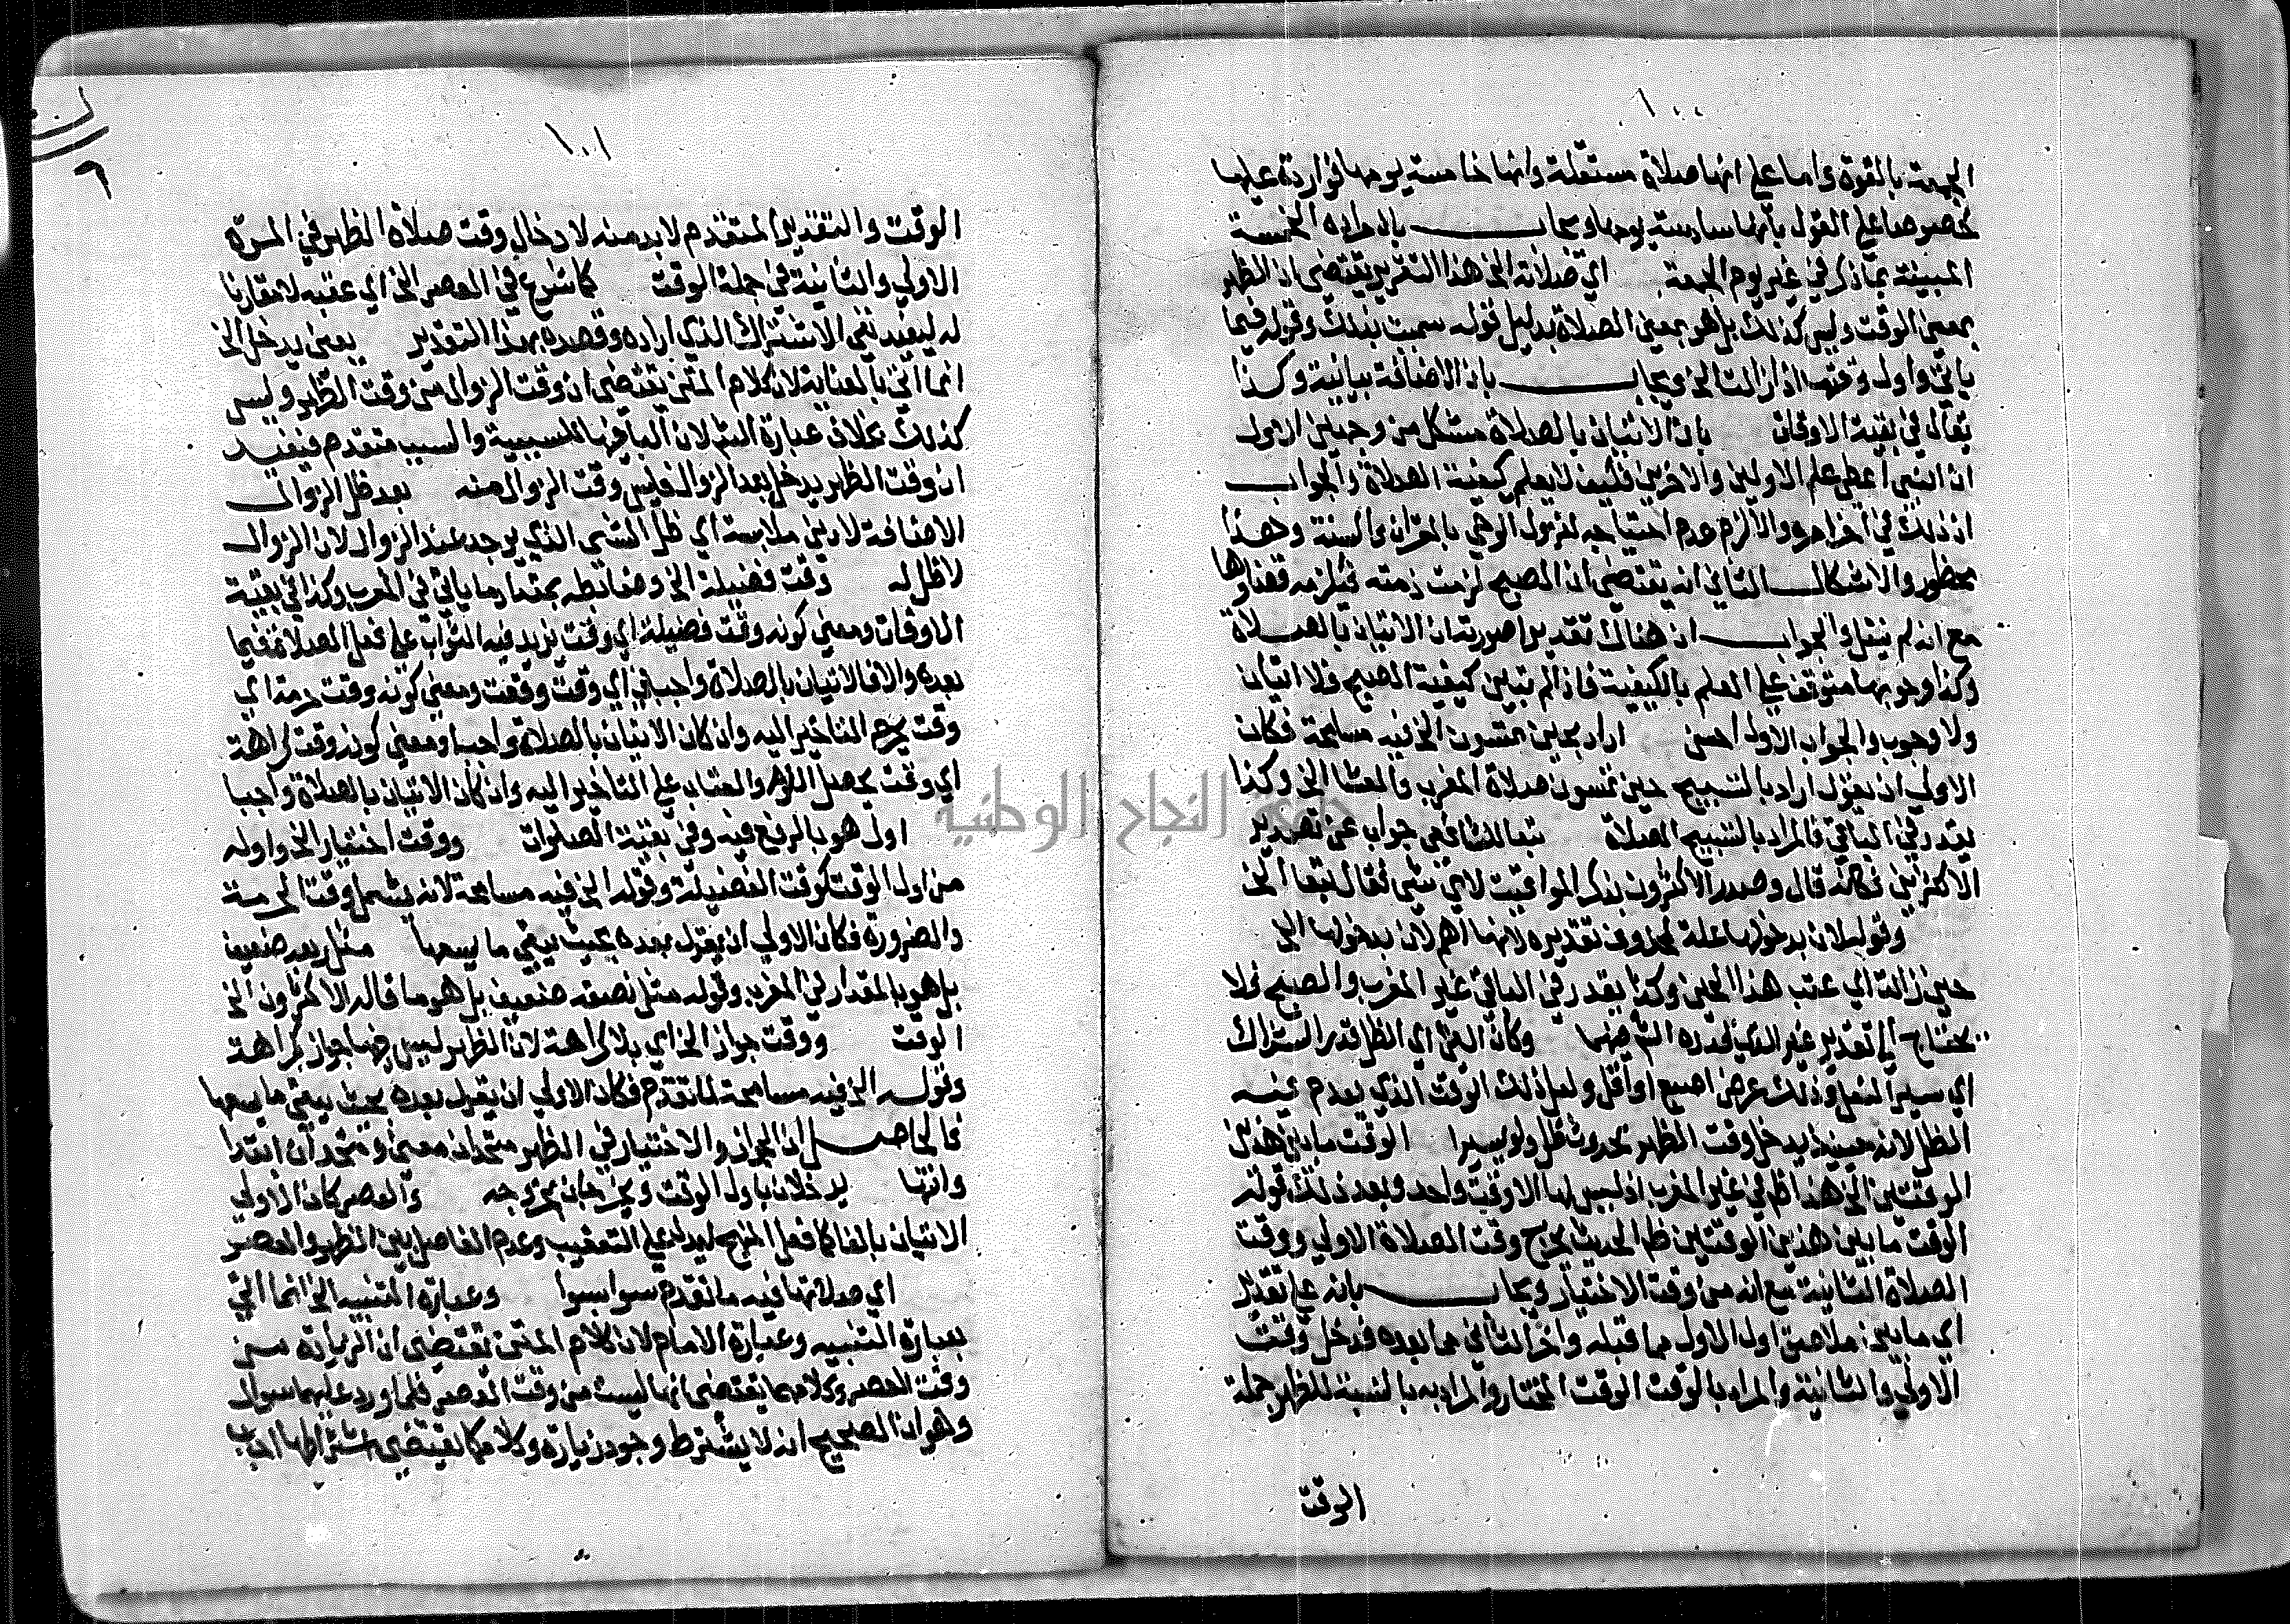 ١٠٠
الجمعة بالقوة واما على انها صلاة مستقلة وانها خامسة يومها فواردة عليها
خصوصا على القول بأنها سادسة يومها ويجاب بان مراده الخمسة
المبينة بما ذكر في غير يوم الجمعة اي صلاته الخ هذا التقرير يقتضي ان الظهر
بمعنى الوقت وليس كذلك بل هو بمعنى الصلاة بدليل قوله سميت بذلك وقوله فيما
يأتي واول وقتها اذا زالت الخ ويجاب بان الاضافة بيانية وكذا
يقال في بقية الاوقات بان الاتيان بالصلاة مشكل من وجهين الاول
ان النبي اعطي علم الاولين والاخرين فكيف لا يعلم كيفية الصلاة والجواب
ان ذلك في اخر امره والا لزم عدم احتياجه لنزول الوحي بالقران والسنة وهذا
محظور والاشكال الثاني انه يقتضي ان الصبح لزمت ذمته فيلزمه قضاؤها
مع انه لم ينقل والجواب ان هناك تقدير صورته ان الاتيان بالصلاة
وكذا وجوبها متوقف على العلم بالكيفية فاذا لم تبين كيفية الصبح فلا اتيان
ولا وجوب والجواب الاول احسن اراد بحين تمسون الخ فيه مسامحة فكان
الاولى ان يقول اراد بالتسبيح حين تمسون صلاة المغرب والعشا الخ وكذا
يقدر في الباقي فالمراد بالتسبيح الصلاة تبعا للشافعي جواب عن تصدير
الاكثرين فكانه قال وصدر الاكثرون بذكر المواقيت لاي شي فقال تبعا الخ
وقوله لان بدخولها علة لمحذوف تقديره لانها اهم لان بدخولها الخ
حين زالت اي عقب هذا الحين وكذا يقدر في الباقي غير المغرب والصبح فلا
يحتاج الى تقدير غير الذي قدره الش فيهما وكان الفي اي الظل قدر الشراك
اي سير النعل وذلك عرض اصبع او اقل ولعل ذلك الوقت الذي يعدم فيه
الظل لانه حينئذ يدخل وقت الظهر بحدوث ظل ولو يسيرا الوقت ما بين هذين
الوقتين الخ هذا ظاهر في غير المغرب اذ ليس لها الا وقت واحد وبعد ذلك قوله
الوقت ما بين هذين الوقتين ظاهر الحديث يخرج وقت الصلاة الاولى ووقت
الصلاة الثانية مع انه من وقت الاختيار ويجاب بانه على تقدير
اي ما بين ملاصق اول الاول مما قبله واخر الثاني مما بعده فدخل وقت
الاولى والثانية والمراد بالوقت الوقت المختار والمراد به بالنسبة للظهر جملة
الوقت
١٠١
الوقت والتقدير المتقدم لا بد منه لادخال وقت صلاة الظهر في المرة
الاولى والثانية في جملة الوقت كما شرع في العصر الخ اي عقبه لا مقارنا
له ليفيد نفي الاشتراك الذي اراده وقصده بهذا التقدير يعني يدخل الخ
انما اتى بالعناية لان كلام المتن يقتضي ان وقت الزوال من وقت الظهر وليس
كذلك بخلاف عبارة الش لان الباء فيها للسببية والسبب متقدم فيفيد
ان وقت الظهر يدخل بعد الزوال فليس وقت الزوال منه بعد ظل الزوال
الاضافة لادنى ملابسة اي ظل الشي الذي يوجد عند الزوال لان الزوال
لا ظل له وقت فضيلة الخ وضابطه بمقدار ما يأتي في المغرب وكذا في بقية
الاوقات ومعنى كونه وقت فضيلة اي وقت يزيد فيه الثواب على فعل الصلاة فيما
بعده والا فالاتيان بالصلاة واجب في اي وقت وقعت ومعنى كونه وقت حرمة اي
وقت يحرم التاخير اليه وان كان الاتيان بالصلاة واجبا ومعنى كونه وقت كراهة
اي وقت يحصل اللوم والعتاب على التاخير اليه وان كان الاتيان بالصلاة واجبا
اول هو بالرفع فيه وفي بقية الصلوات ووقت اختيار الخ واوله
من اول الوقت كوقت الفضيلة وقوله الخ فيه مسامحة لانه يشمل وقت الحرمة
والضرورة فكان الاولى ان يقول بعده بحيث يبقى ما يسعها مثل بعد ضعيف
بل هو بالمقدار في المغرب وقوله مثل نصفه ضعيف بل هو ما قاله الاكثرون الخ
الوقت ووقت جواز الخ اي بلا كراهة لان الظهر ليس فيها جواز بكراهة
وقوله الخ فيه مسامحة لما تقدم فكان الاولى ان يقول بعده بحيث يبقى ما يسعها
فالحاصل ان الجواز والاختيار في الظهر متحدان معنى ومتحدان ابتدا
وانتها يدخلان باول الوقت ويخرجان بخروجه والعصر كان الاولى
الاتيان بالفا كما فعل المنهج ليدل على التعقيب وعدم الفاصل بين الظهر والعصر
اي صلاتها فيه ما تقدم سوا بسوا وعبارة التنبيه الخ انما اتى
بعبارة التنبيه وعبارة الامام لان كلام المتن يقتضي ان الزيادة من
وقت العصر وكلامهما يقتضي انها ليست من وقت العصر فلما اورد عليهما سوال
وهو ان الصحيح انه لا يشترط وجود زيادة وكلامهما يقتضي اشتراطها اجاب
جامعة النجاح الوطنية